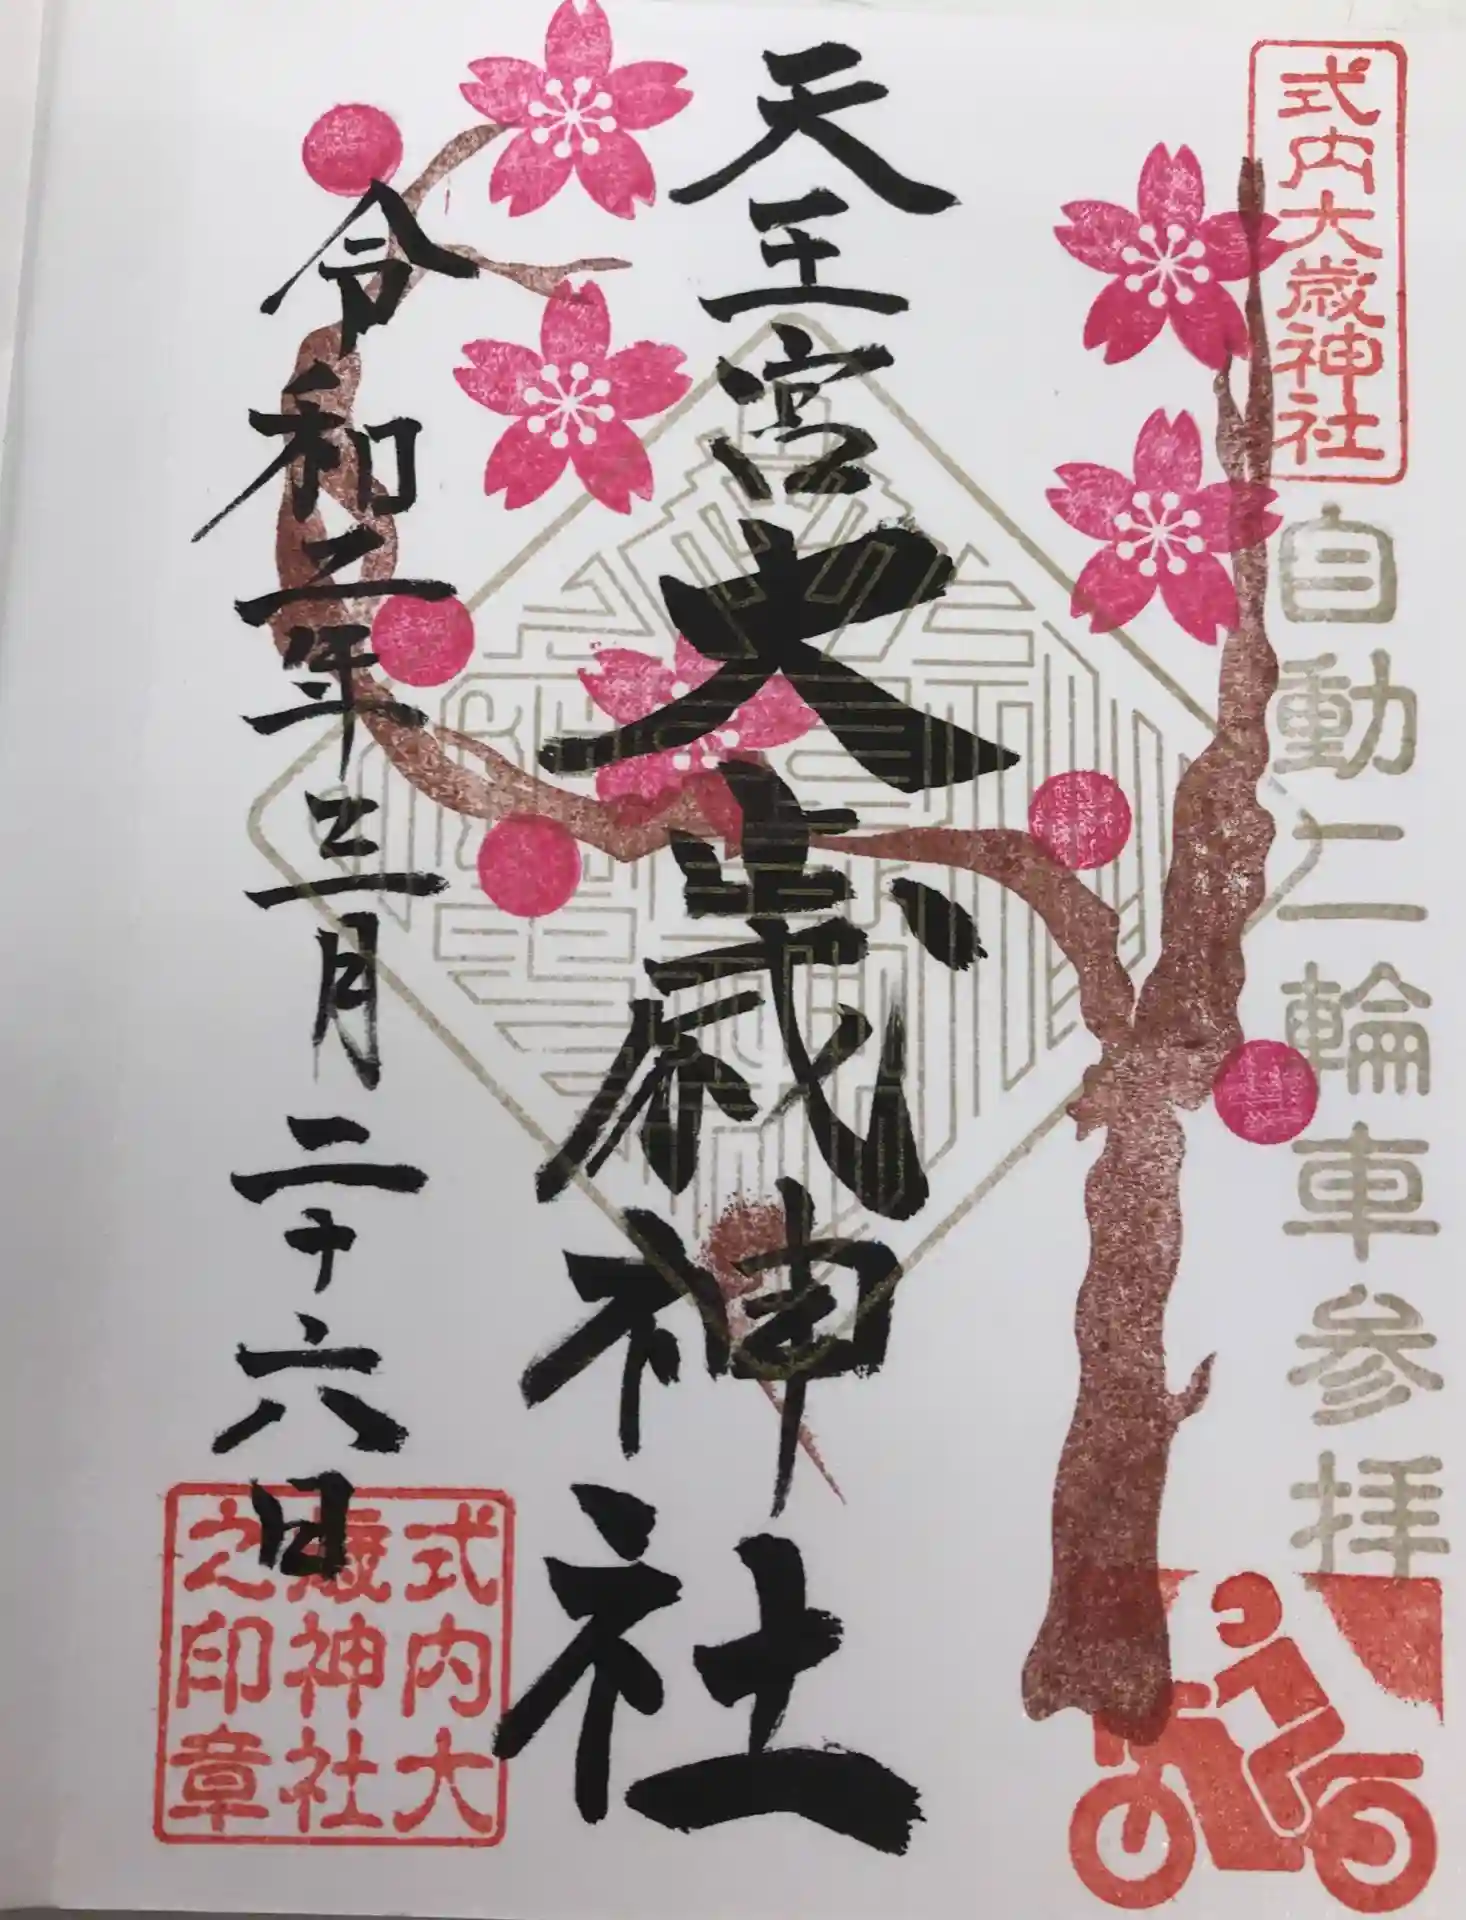 式内大歳神社
自動二輪車参拝
天王宮大歳神社
令和二年三月二十六日
式内大
歳神社
之印章